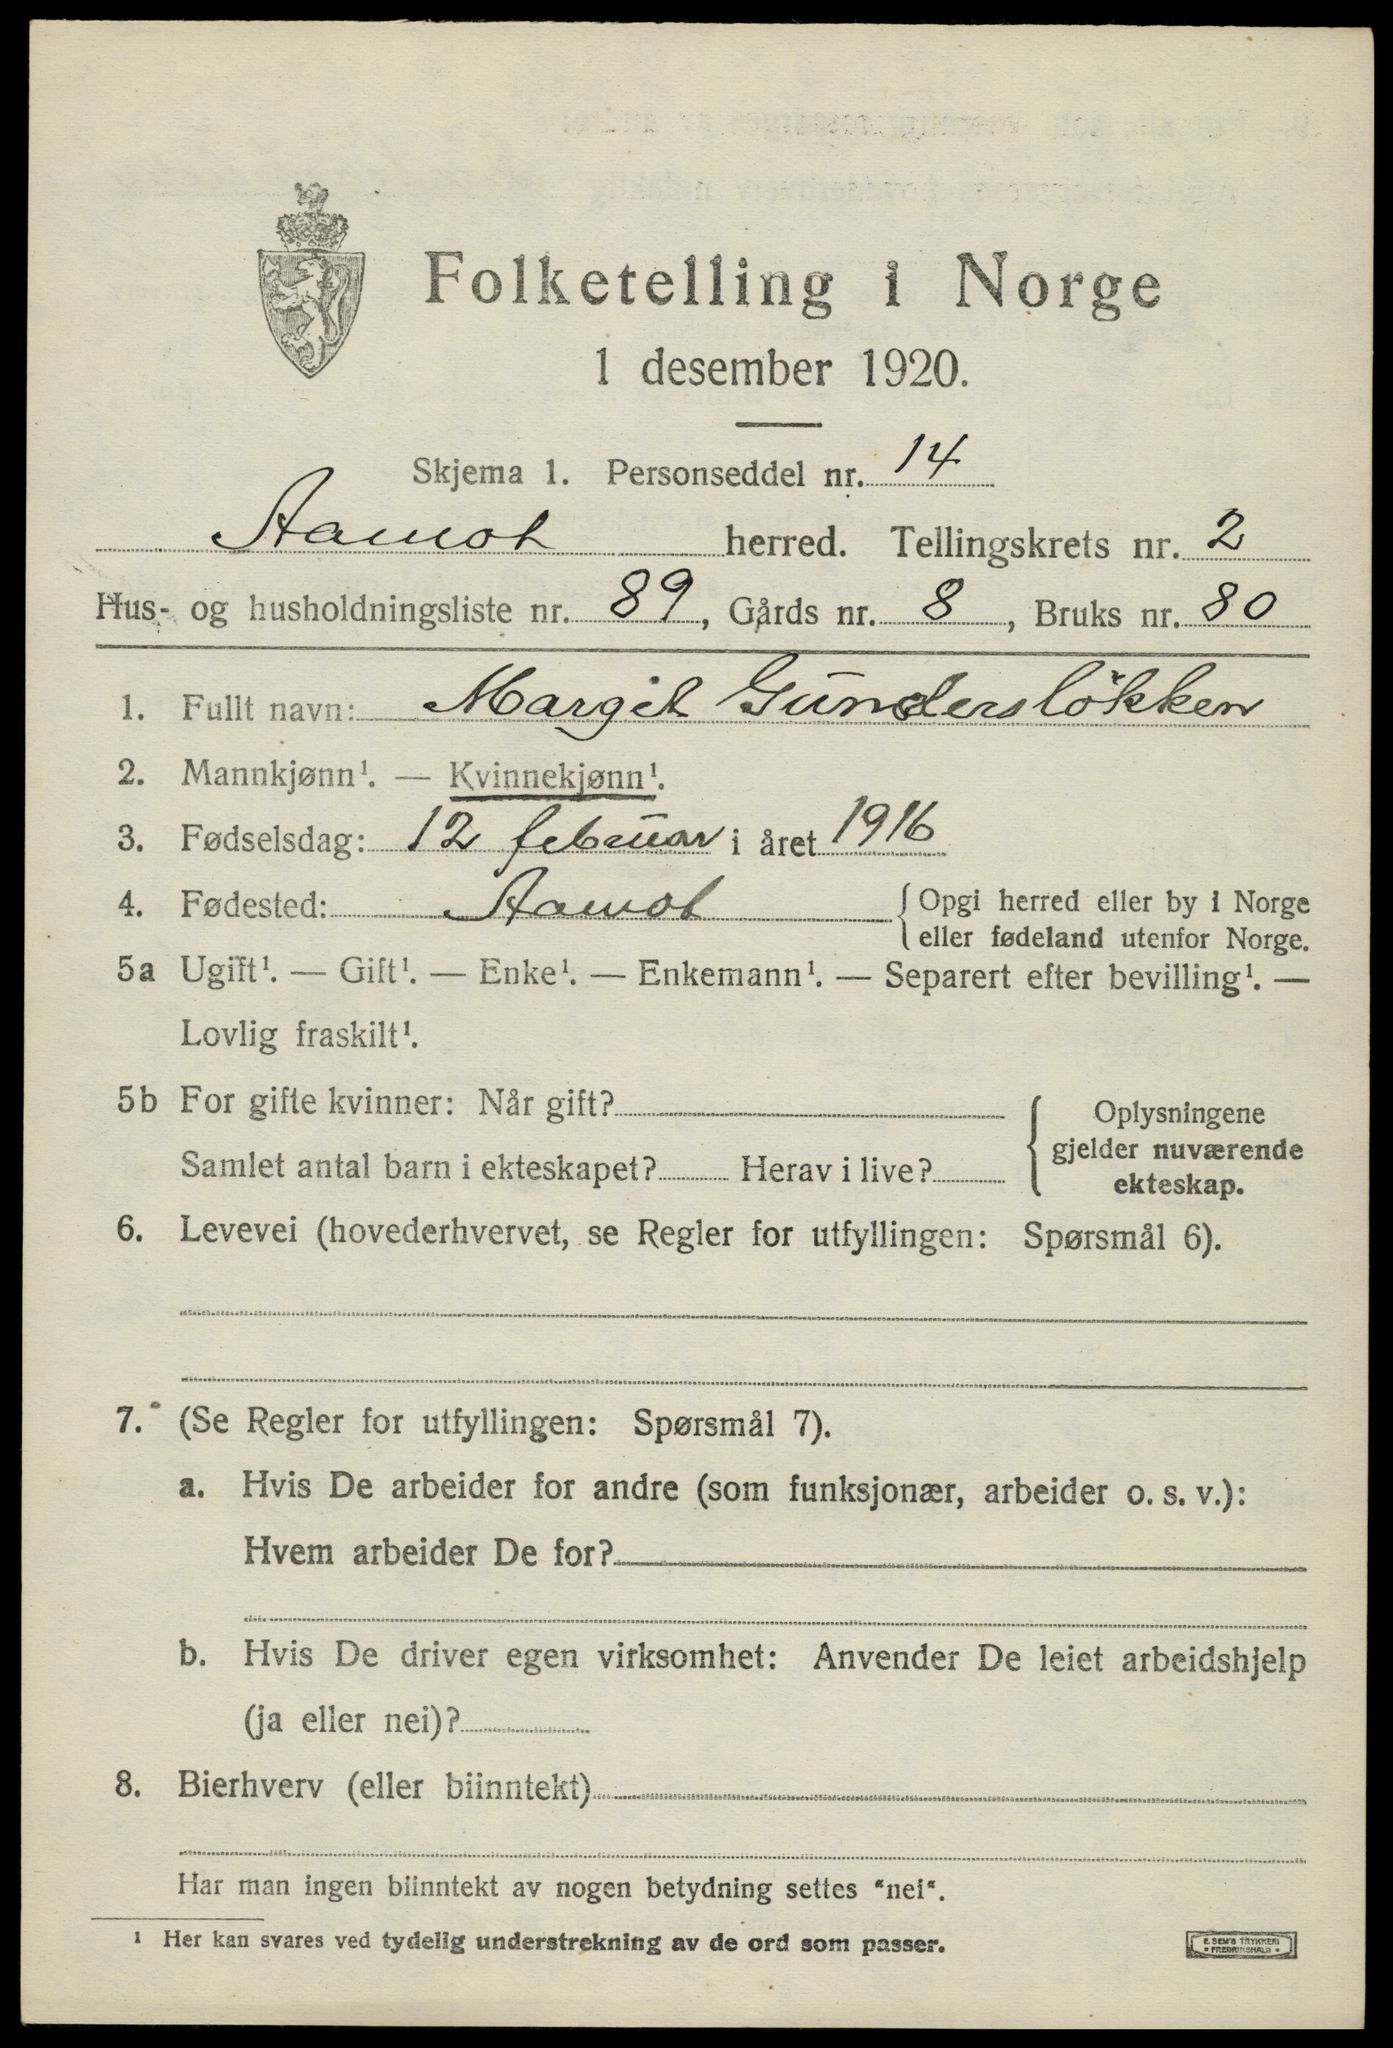 Folketelling i Norge
1 desember 1920.
Skjema 1. Personseddel nr. 14
Aamot herred. Tellingskrets nr. 2
Hus- og husholdningsliste nr. 89, Gårds nr. 8, Bruks nr. 80
1. Fullt navn: Margit Gundersløkken
2. Mannkjønn¹. — Kvinnekjønn¹.
3. Fødselsdag: 12 februar i året 1916
4. Fødested: Aamot { Opgi herred eller by i Norge
eller fødeland utenfor Norge.
5a Ugift¹. — Gift¹. — Enke¹. — Enkemann¹. — Separert efter bevilling¹. —
Lovlig fraskilt¹.
5b For gifte kvinner: Når gift? { Oplysningene
gjelder nuværende
Samlet antal barn i ekteskapet? Herav i live?
ekteskap.
6. Levevei (hovederhvervet, se Regler for utfyllingen: Spørsmål 6).
7. (Se Regler for utfyllingen: Spørsmål 7).
a. Hvis De arbeider for andre (som funksjonær, arbeider o. s. v.):
Hvem arbeider De for?
b. Hvis De driver egen virksomhet: Anvender De leiet arbeidshjelp
(ja eller nei)?
8. Bierhverv (eller biinntekt)
Har man ingen biinntekt av nogen betydning settes "nei".
¹ Her kan svares ved tydelig understrekning av de ord som passer.
E. SEM'S TRYKKERI
• FREDRIKSHALD •